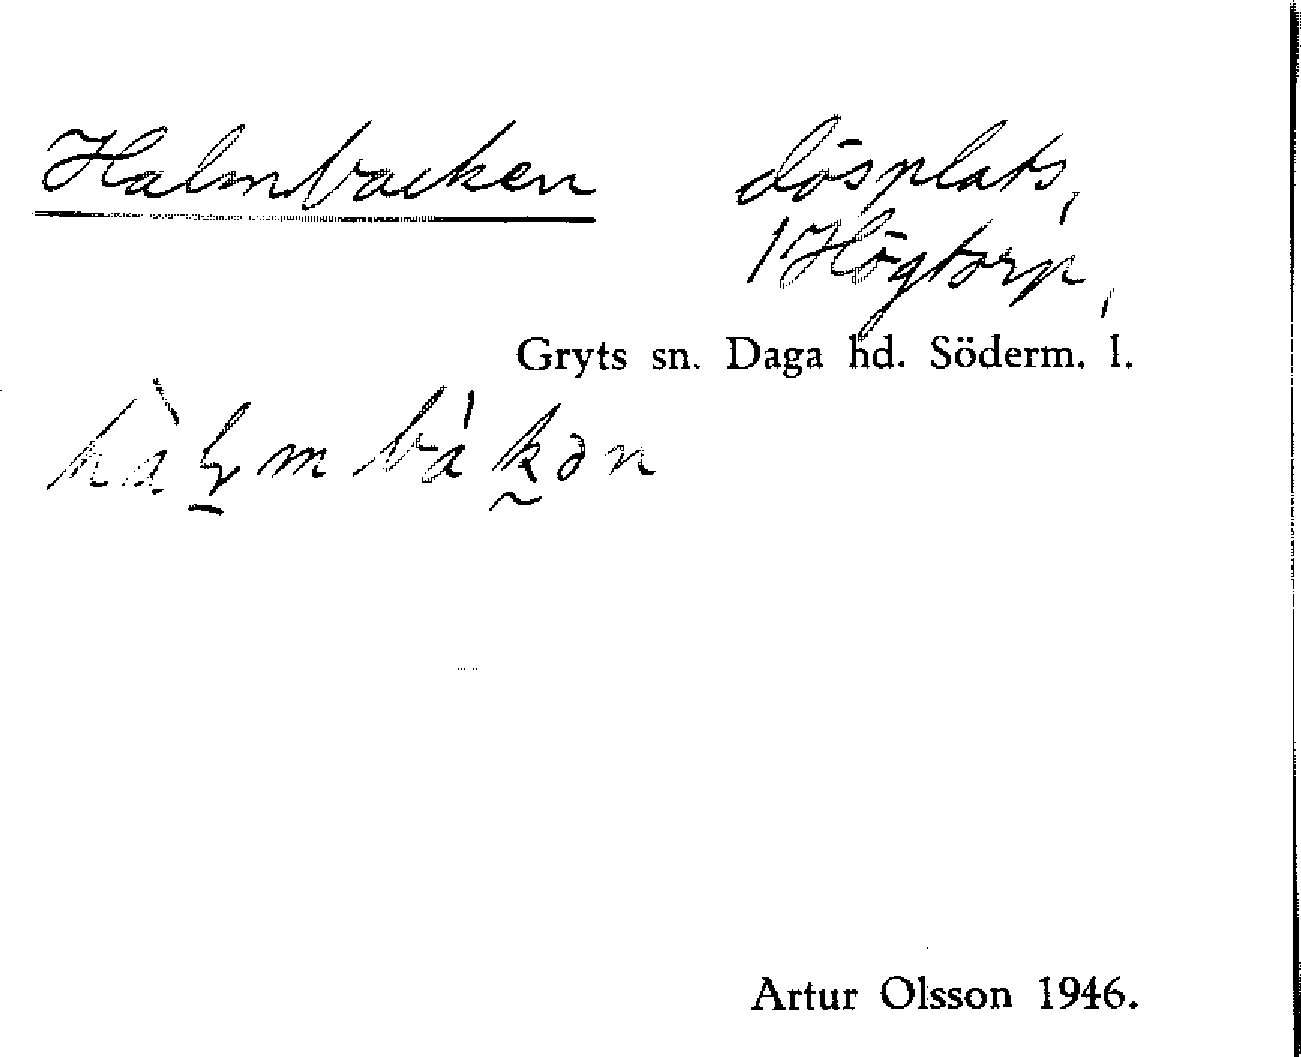 Halmbacken dösplats,
1 Högtorp,
Gryts sn. Daga hd. Söderm. l.
Artur Olsson 1946.